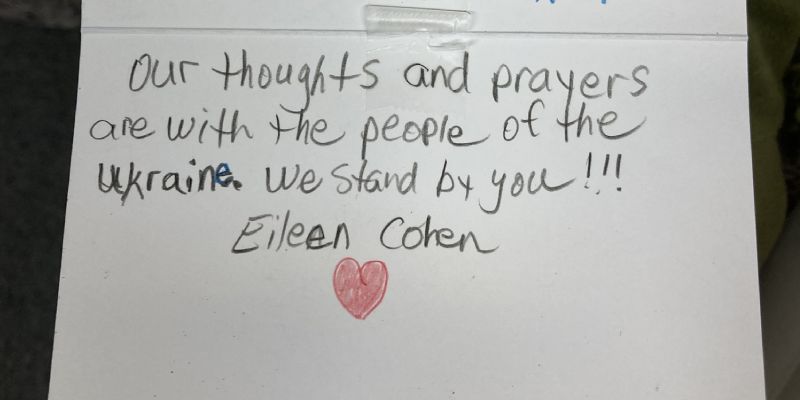 Our thoughts and prayers
are with the people of the
Ukraine. We stand by you!!!
Eileen Cohen